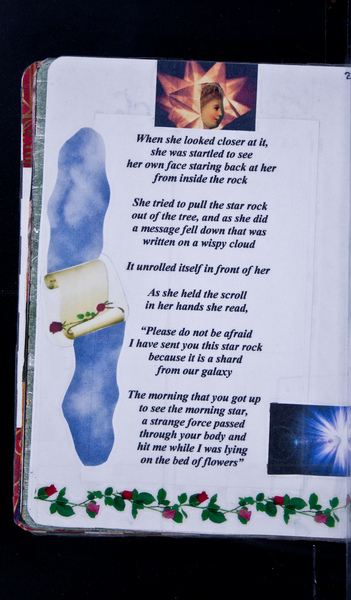 2
When she looked closer at it,
she was startled to see
her own face staring back at her
from inside the rock
She tried to pull the star rock
out of the tree, and as she did
a message fell down that was
written on a wispy cloud
It unrolled itself in front of her
As she held the scroll
in her hands she read,
“Please do not be afraid
I have sent you this star rock
because it is a shard
from our galaxy
The morning that you got up
to see the morning star,
a strange force passed
through your body and
hit me while I was lying
on the bed of flowers”